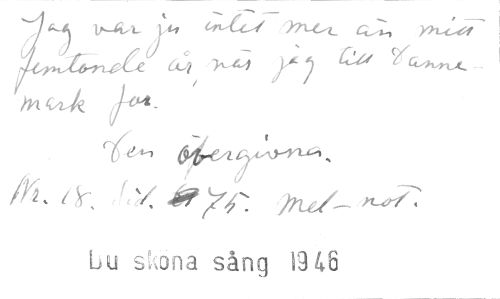 Jag var ju intet mer än mitt
femtonde år, när jag till Danne-
mark for.
Den övergivna.
Nr. 18. Sid. 75. Mel-not.
Du sköna sång 1946